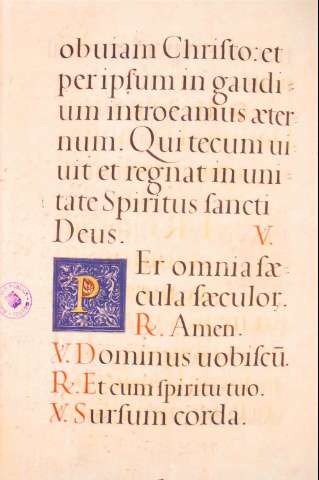 obuiam Christo: et
per ipsum in gaudi-
um introeamus æter
num. Qui tecum ui
uit et regnat in uni-
tate Spiritus sancti
Deus. V.
Per omnia sæ-
cula sæculor.
R. Amen.
V. Dominus uobiscū.
R. Et cum spiritu tuo.
V. Sursum corda.